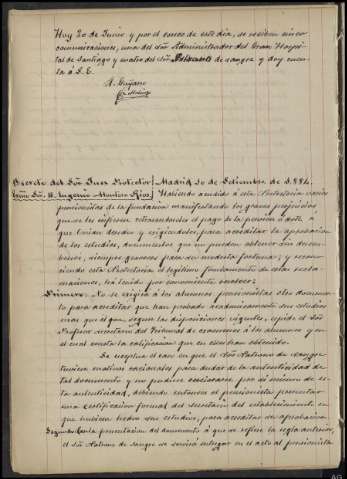 Hoy 20 de Junio y por el correo de este dia, se reciben cinco
comunicaciones, una del Sõr Administrador del Gran Hospi-
tal de Santiago y cuatro del Sõr de sangre y doy cuen-
ta á S. E.
Decreto del Sõr Juez Protector Madrid 20 de Setiembre de 1.884.
Exmo. Sõr. D. Eugenio Montero Rios Habiendo acudido á esta Protectoria varios
pensionistas de la fundacion manifestando los graves perjuicios
que se les infieren retrasandoles el pago de la pension ó dote á
que tienen derecho y exigiendoles, para acreditar la aprobacion
de los estudios, documentos que no pueden obtener sin desem-
bolsos, siempre gravosos para su modesta fortuna; y recono-
ciendo esta Protectoria el legitimo fundamento de estas recla-
maciones, ha tenido por conveniente resolver:
Primero: No se exigirá á los alumnos pensionistas otro documen-
to para acreditar que han probado academicamente sus estudios
mas que el que, segun las disposiciones vigentes, expide el Sõr
Profesor secretario del Tribunal de examenes á los alumnos y en
el cual consta la calificacion que en ellos han obtenido.
Se exceptua el caso en que el Sõr Patrono de sangre
tuviere motivos racionales para dudar de la autenticidad de
tal documento y no pudiera cerciorarse por si mismo de es-
ta autenticidad, debiendo entonces el pensionista presentar
una certificacion formal del secretario del establecimiento en
que hubiera hecho sus estudios, para acreditar su aprobacion.
Segundo: En la presentacion del documento á que se refiere la regla anterior,
el Sõr Patrono de sangre se servirá entregar en el acto al pensionista